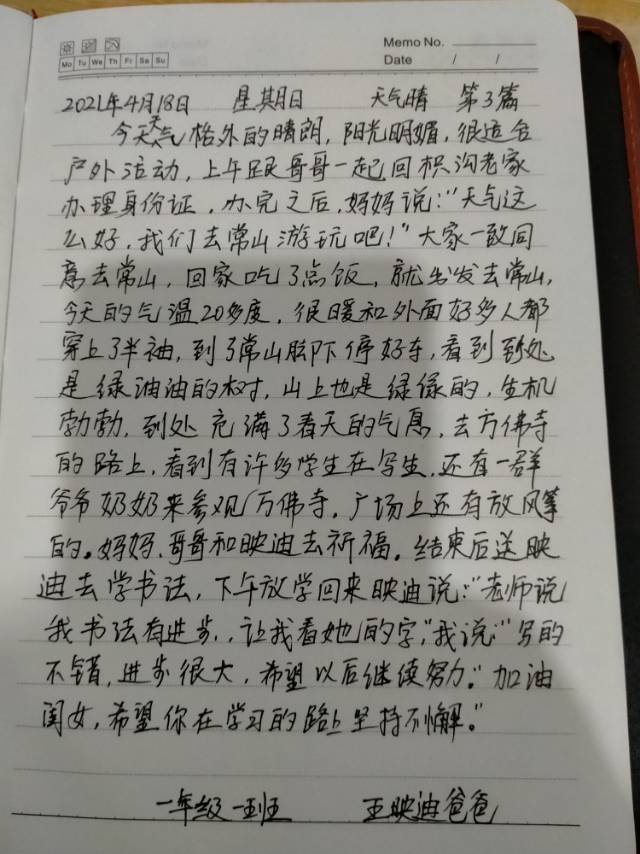 Memo No.
Mo Tu We Th Fr Sa Su
Date / /
2021年4月18日 星期日 天气晴 第3篇
今天天气格外的晴朗，阳光明媚，很适合
户外活动，上午跟哥哥一起回枳沟老家
办理身份证，办完之后，妈妈说：“天气这
么好，我们去常山游玩吧！”大家一致同
意去常山，回家吃了点饭，就出发去常山，
今天的气温20多度，很暖和外面好多人都
穿上了半袖，到了常山脚下停好车，看到到处
是绿油油的树，山上也是绿绿的，生机
勃勃，到处充满了春天的气息，去万佛寺
的路上，看到有许多学生在写生，还有一群
爷爷奶奶来参观万佛寺，广场上还有放风筝
的。妈妈、哥哥和映迪去祈福。结束后送映
迪去学书法，下午放学回来映迪说：“老师说
我书法有进步，让我看她的字，”我说：“写的
不错，进步很大，希望以后继续努力。”加油
闺女，希望你在学习的路上坚持不懈。”
一年级一班 王映迪爸爸